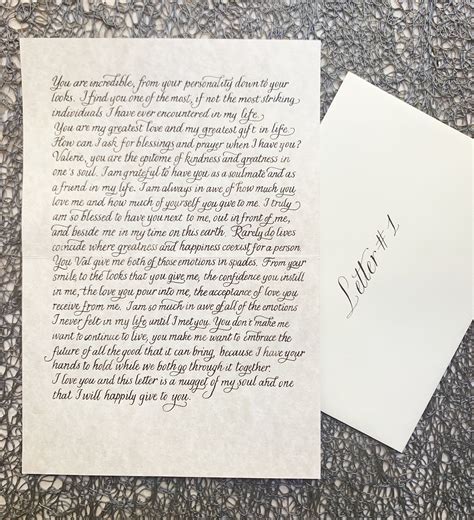 You are incredible, from your personality down to your
looks. I find you one of the most, if not the most striking
individuals I have ever encountered in my life.
You are my greatest love and my greatest gift in life.
How can I ask for blessings and prayer when I have you?
Valerie, you are the epitome of kindness and greatness in
one's soul. I am grateful to have you as a soulmate and as
a friend in my life. I am always in awe of how much you
love me and how much of yourself you give to me. I truly
am so blessed to have you next to me, out in front of me,
and beside me in my time on this earth. Rarely do lives
coincide where greatness and happiness coexist for a person.
You Val give me both of those emotions in spades. From your
smile to the looks that you give me, the confidence you instill
in me, the love you pour into me, the acceptance of love you
receive from me. I am so much in awe of all of the emotions
I never felt in my life until I met you. You don't make me
want to continue to live, you make me want to embrace the
future of all the good that it can bring, because I have your
hands to hold while we both go through it together.
I love you and this letter is a nugget of my soul and one
that I will happily give to you.
Letter #1